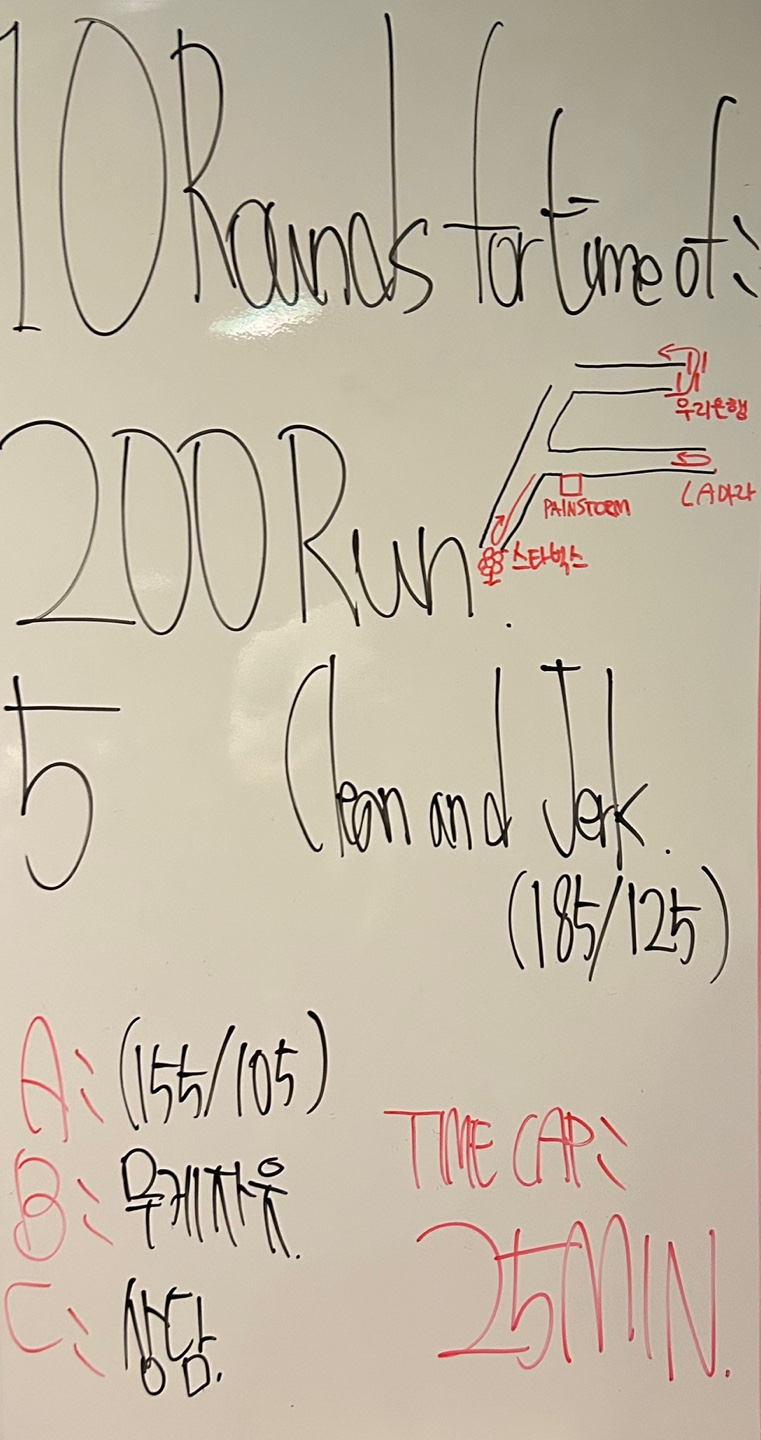 10 Rounds for time of:
우리은행
200 Run.
PAINSTORM
LA마라
스타벅스
5 Clean and Jerk.
(185/125)
A: (155/105)
B: 무게자유.
C: 상담.
TIME CAP:
25MIN.